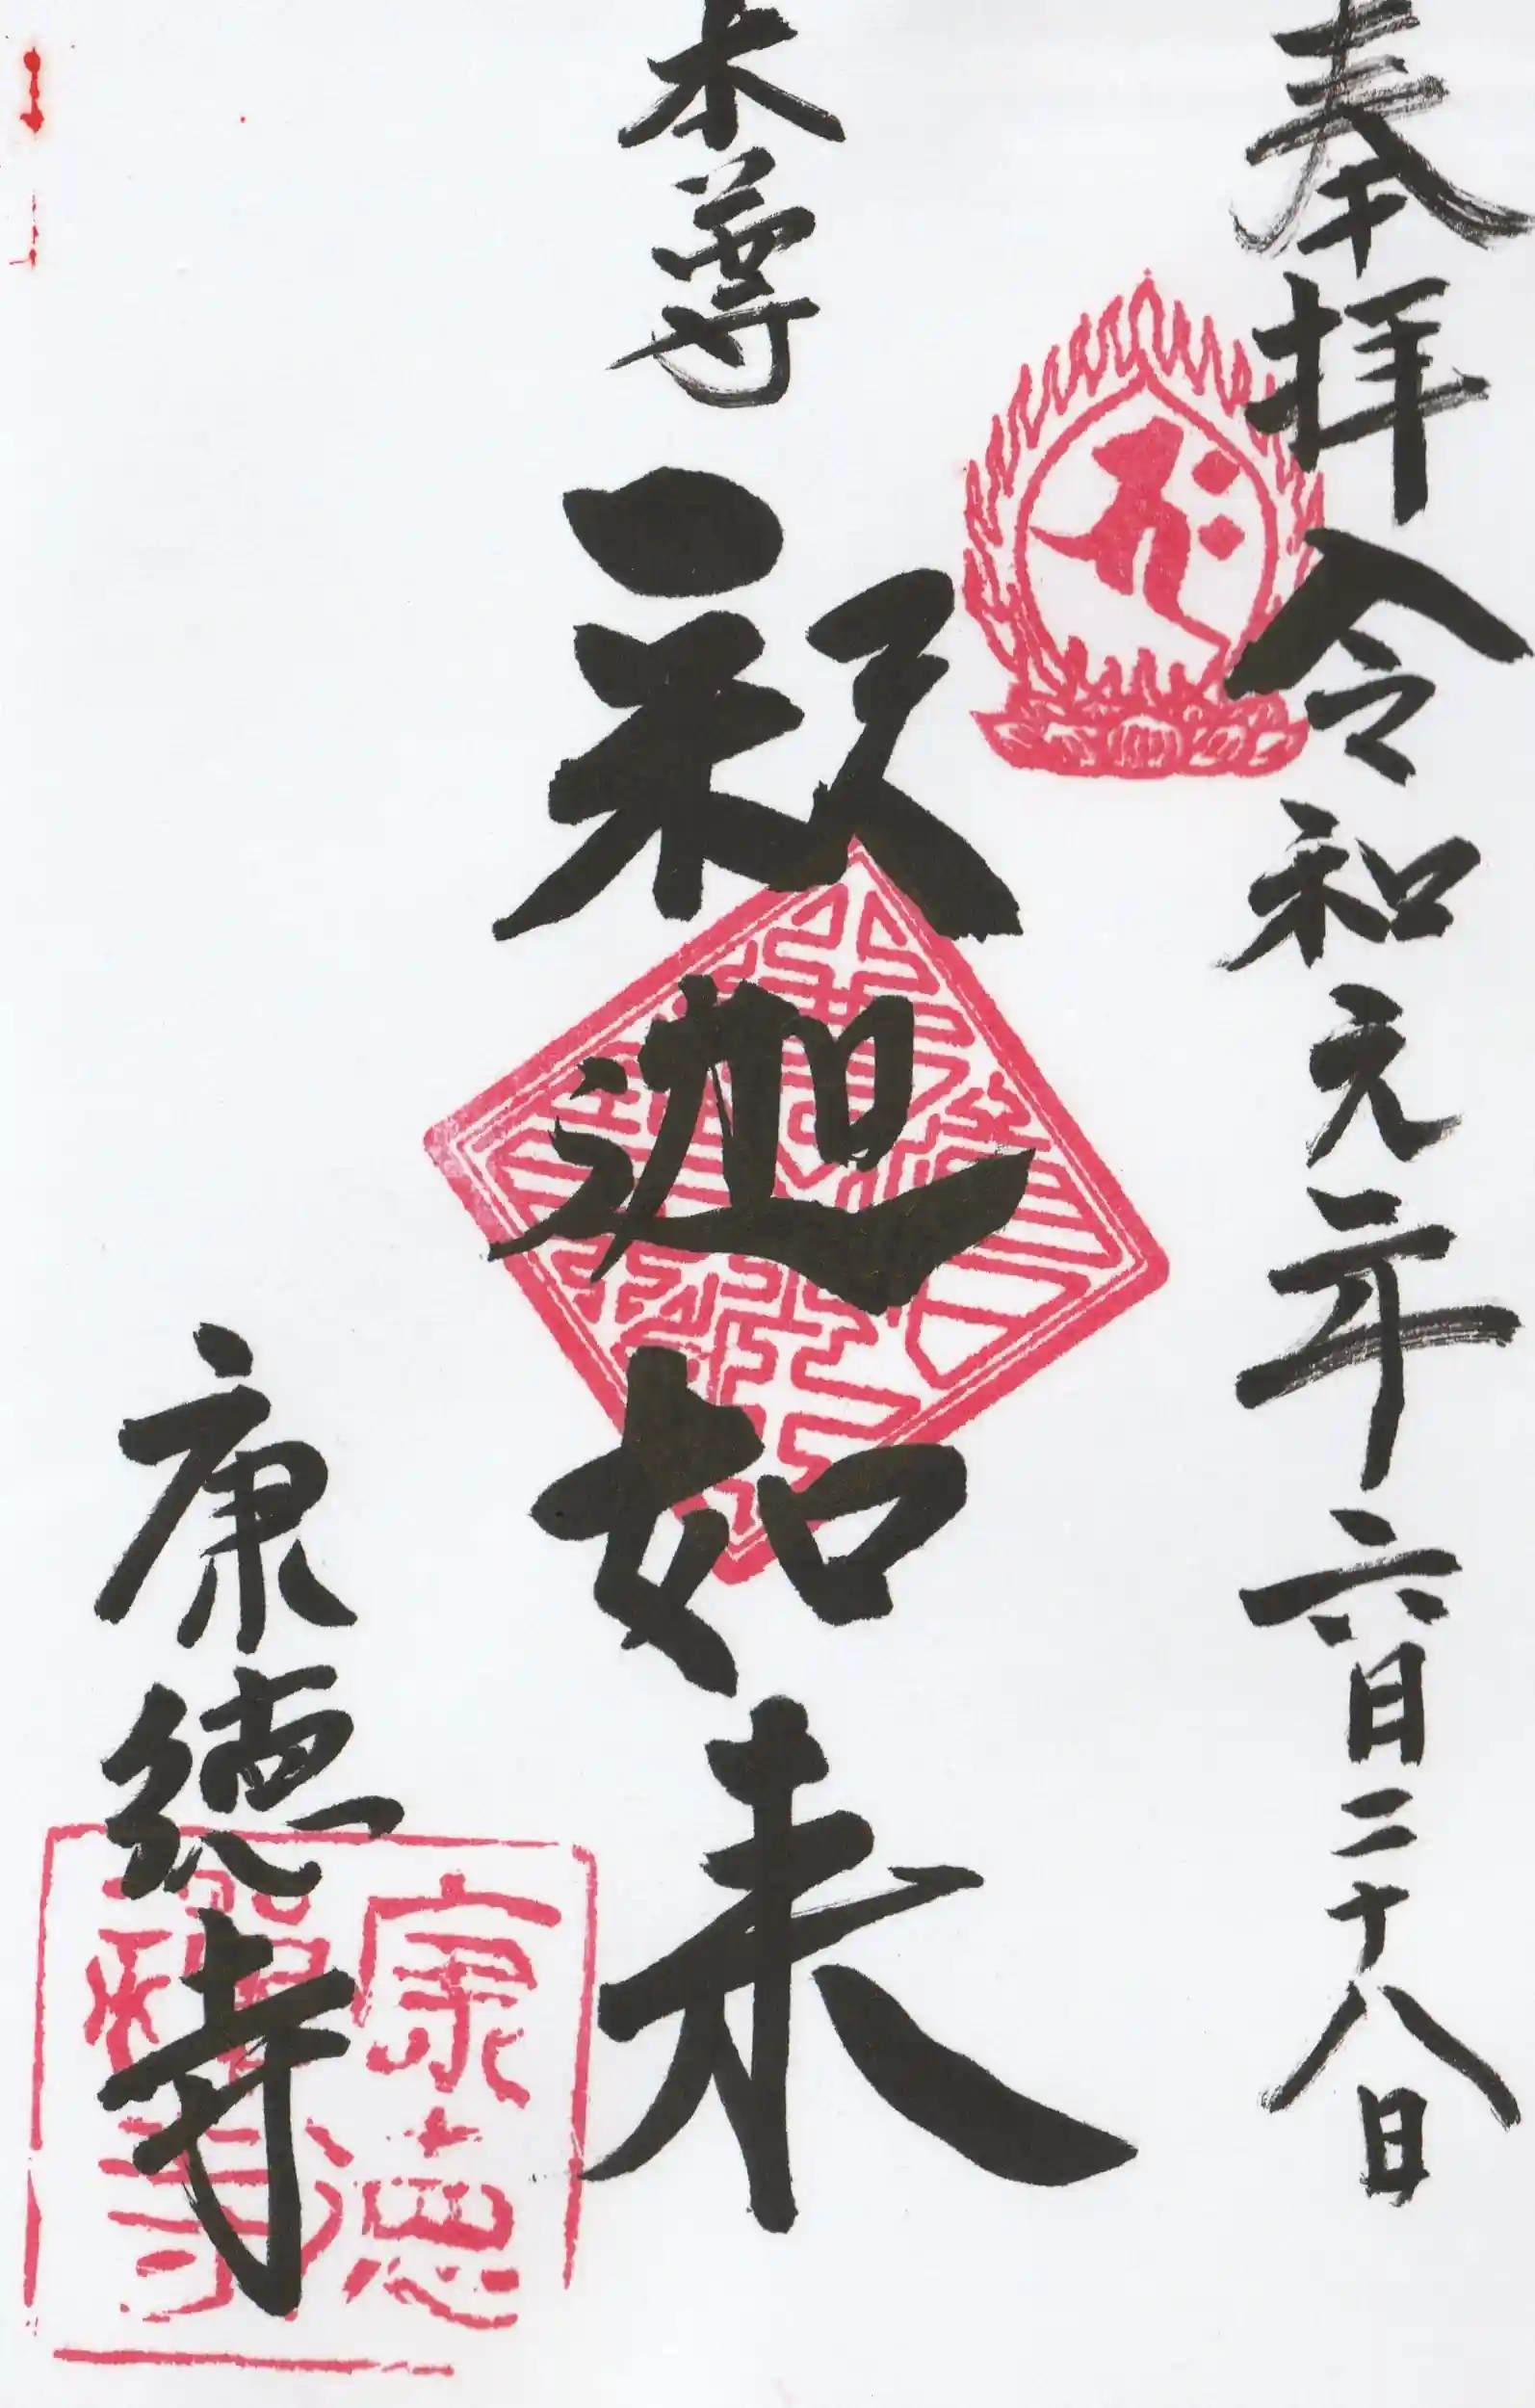 奉拝令和元年六月二十八日
本尊釈迦如来
康徳寺
康徳
禅寺